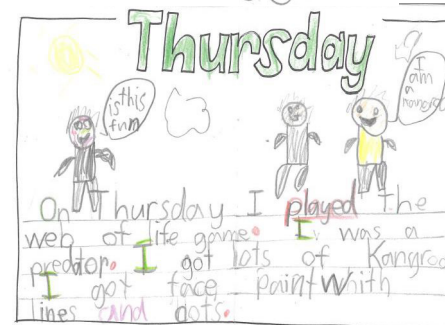 Thursday
is this
fun
I
am
a
On Thursday I played the
web of life game. I was a
predator. I got lots of Kangroo
I got face paint whith
lines and dots.